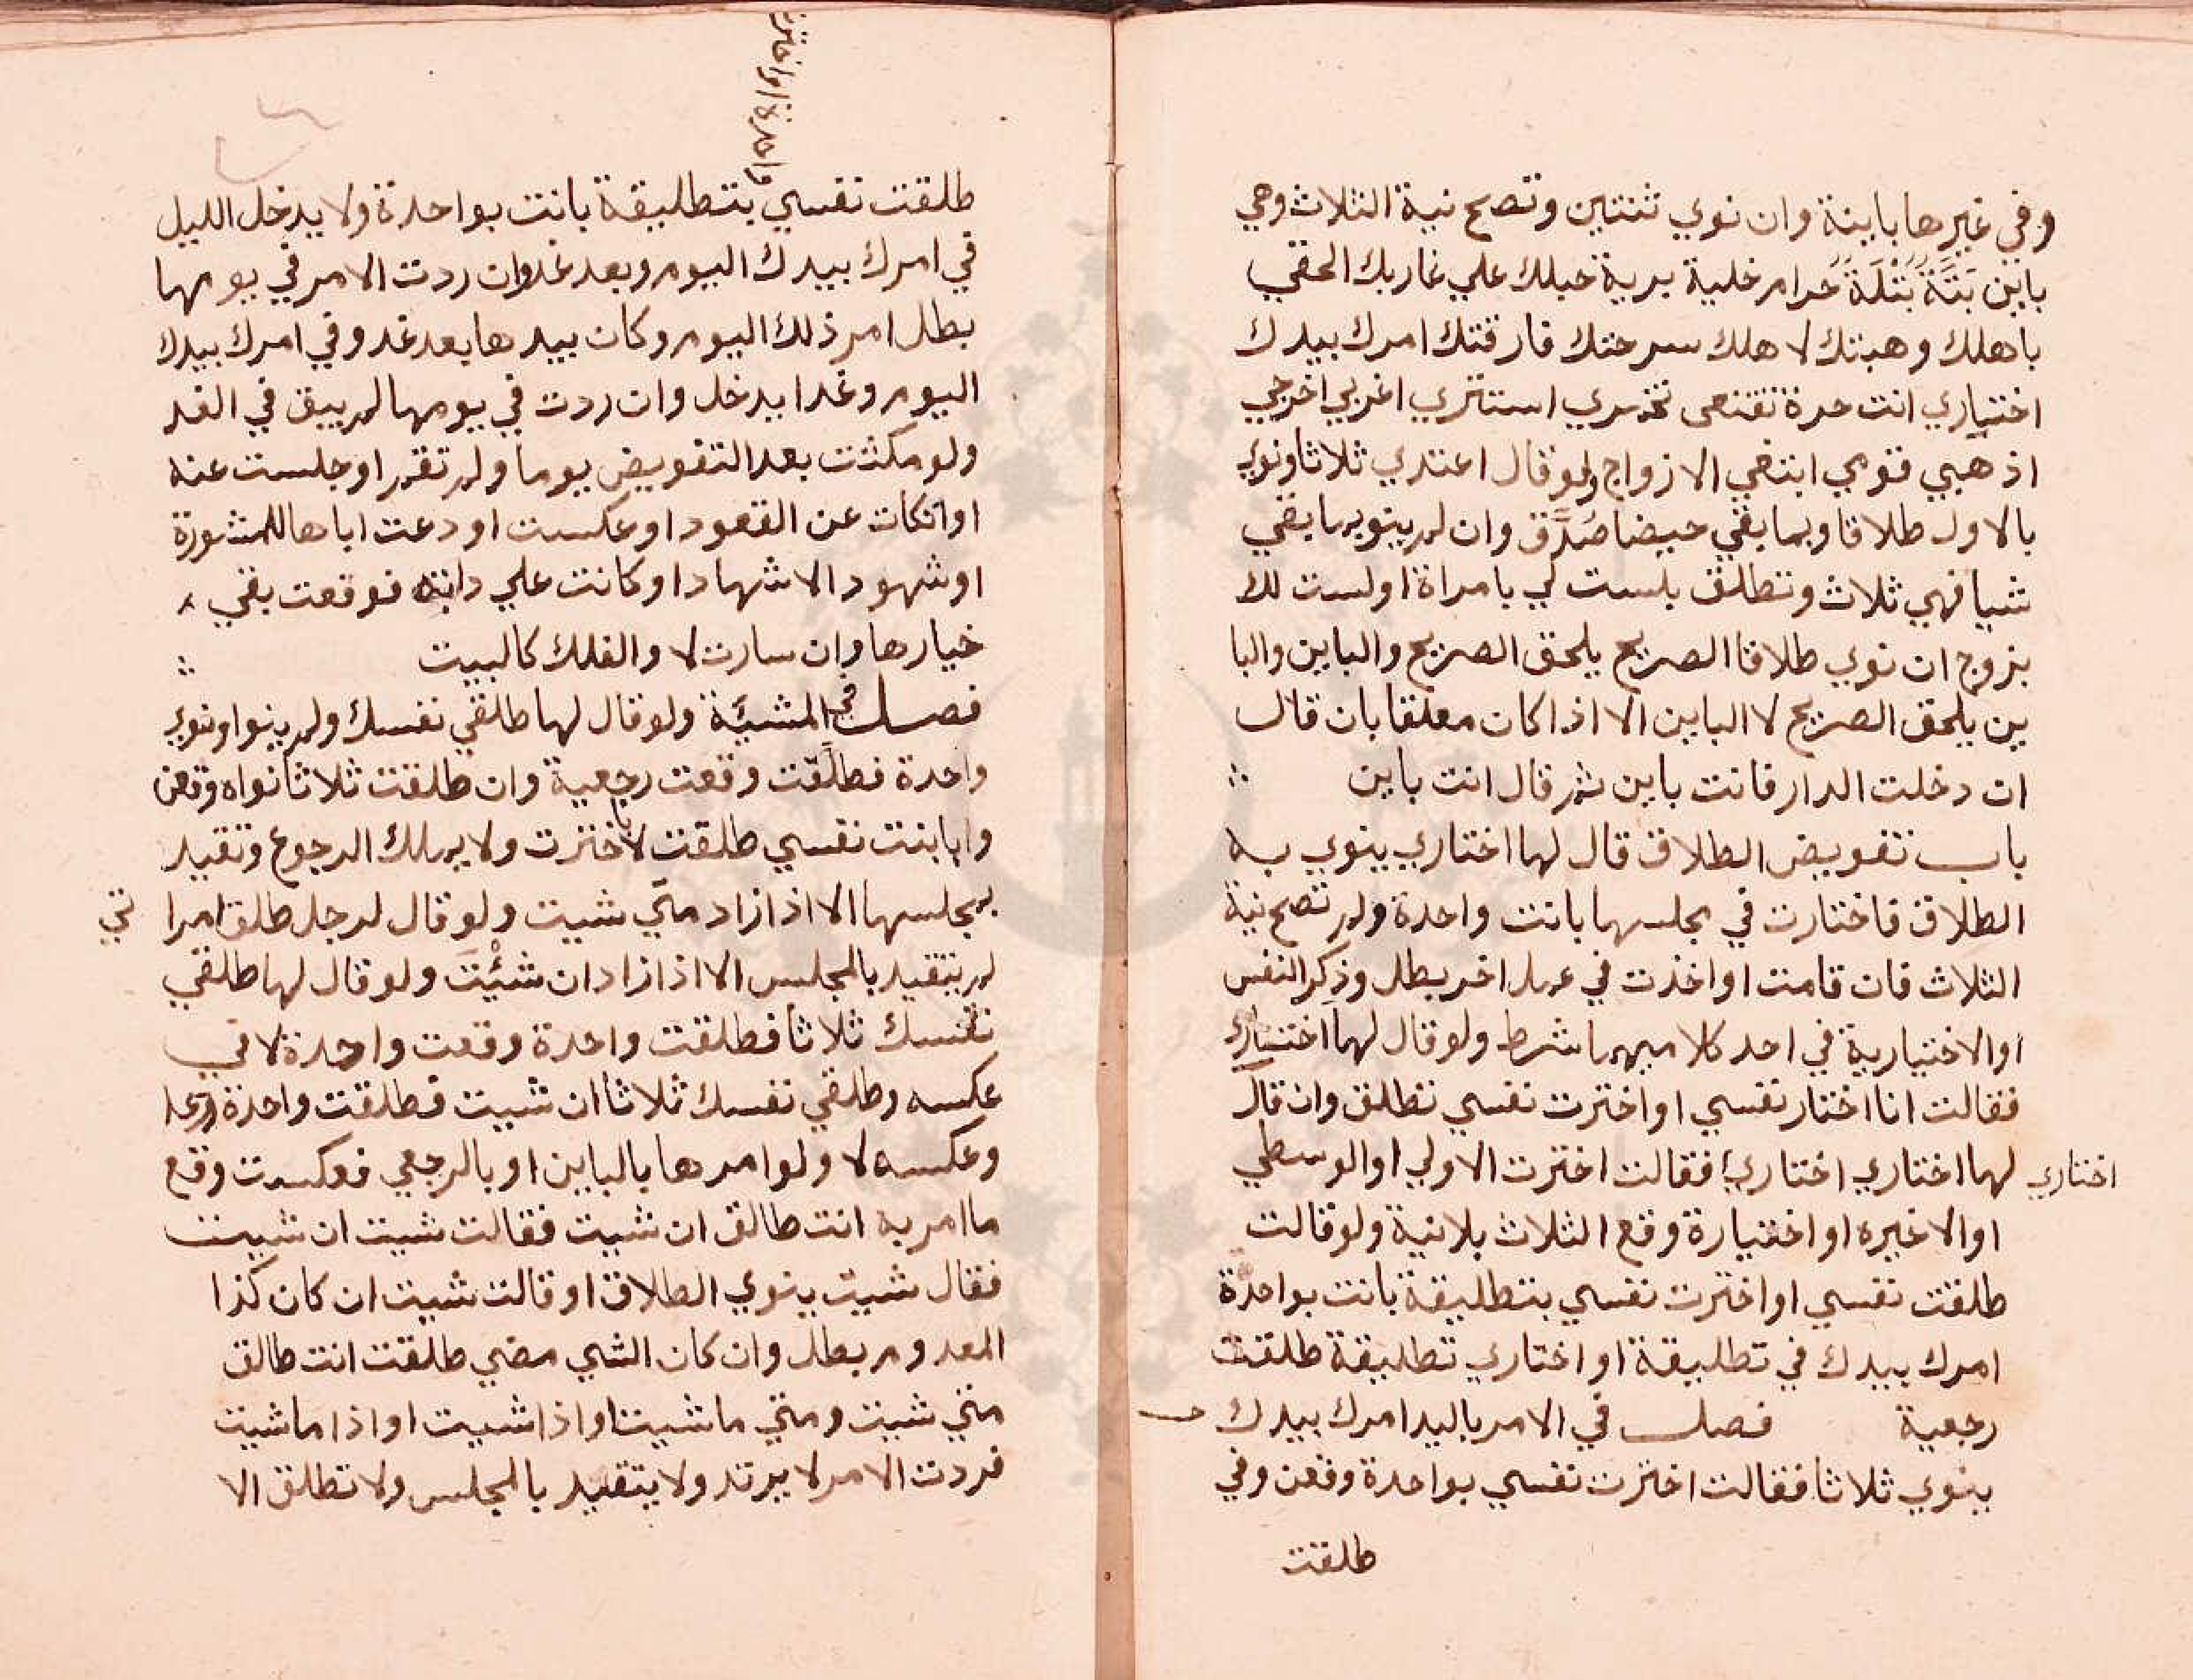 وفي غيرها باينة وان نوي ثنتين وتصح نية الثلاث وهي
باين بَتَّةٌ بَتْلَةٌ حَرام خلية برية حبلك علي غاربك الحقي
باهلك وهبتك لاهلك سرحتك فارقتك امرك بيدك
اختياري انت حرة تقنعى تخمري استتري اغربي اخرجي
اذهبي قومي ابتغي الازواج ولو قال اعتدي ثلاثا ونوي
بالاول طلاقا وبما بقي حيضا صَدَّق وان لم ينو بما بقي
شيا فهي ثلاث وتطلق بلست لي بامراة اولست لك
بزوج ان نوي طلاقا الصريح يلحق الصريح والباين والبا
ين يلحق الصريح لا الباين الا اذا كان معلقا بان قال
ان دخلت الدار فانت باين ثم قال انت باين
باب تفويض الطلاق قال لها اختاري ينوي به
الطلاق فاختارت في مجلسها بانت واحدة ولم تصح نية
الثلاث فان قامت او اخذت في عمل اخر بطل وذكر النفس
اوالاختيارية في احد كلاميهما شرط ولو قال لها اختاري
فقالت انا اختار نفسي او اخترت نفسي تطلق وان قال
لها اختاري اختاري فقالت اخترت الاولي او الوسطي
اختاري
اوالاخيره او اختيارة وقع الثلاث بلا نية ولو قالت
طلقت نفسي او اخترت نفسي بتطليقة بانت بواحدة
امرك بيدك في تطليقة او اختاري تطليقة طلقت
رجعية فصل في الامر باليد امرك بيدك
ينوي ثلاثا فقالت اخترت نفسي بواحدة وقعن وفي
طلقت
واحدة او اخترت
طلقت نفسي بتطليقة بانت بواحدة ولا يدخل الليل
في امرك بيدك اليوم وبعد غد وان ردت الامر في يومها
بطل امر ذلك اليوم وكان بيدها بعد غد وفي امرك بيدك
اليوم وغدا يدخل وان ردت في يومها لم يبق في الغد
ولو مكثت بعد التفويض يوما ولم تقم او جلست عنه
او اتكات عن القعود او عكست او دعت اباها للمشورة
او شهود الاشهادا وكانت علي دابته فوقعت بقي
خيارها وان سارت لا والفلك كالبيت
فصل في المشيَّة ولو قال لها طلقي نفسك ولم ينو او نوي
واحدة فطلَّقت وقعت رجعية وان طلقت ثلاثا نواه وقعن
وابابنت نفسي طلقت لا باخترت ولا يملك الرجوع وتقيد
بمجلسها الا اذا زاد متي شيت ولو قال لرجل طلق امرا
تي
لم يتقيد بالمجلس الا اذا زاد ان شئْتَ ولو قال لها طلقي
نفسك ثلاثا فطلقت واحدة وقعت واحدة لا في
عكسه وطلقي نفسك ثلاثا ان شيت فطلقت واحدة
وعكسه لا ولو امرها بالباين او بالرجعي فعكست وقع
ما امر به انت طالق ان شيت فقالت شيت ان شيت
فقال شيت ينوي الطلاق او قالت شيت ان كان كذا
المعدوم بطل وان كان الشي مضي طلقت انت طالق
متي شيت ومتي ما شيت او اذا شيت او اذا ما شيت
فردت الامر لا يرتد ولا يتقيد بالمجلس ولا تطلق الا